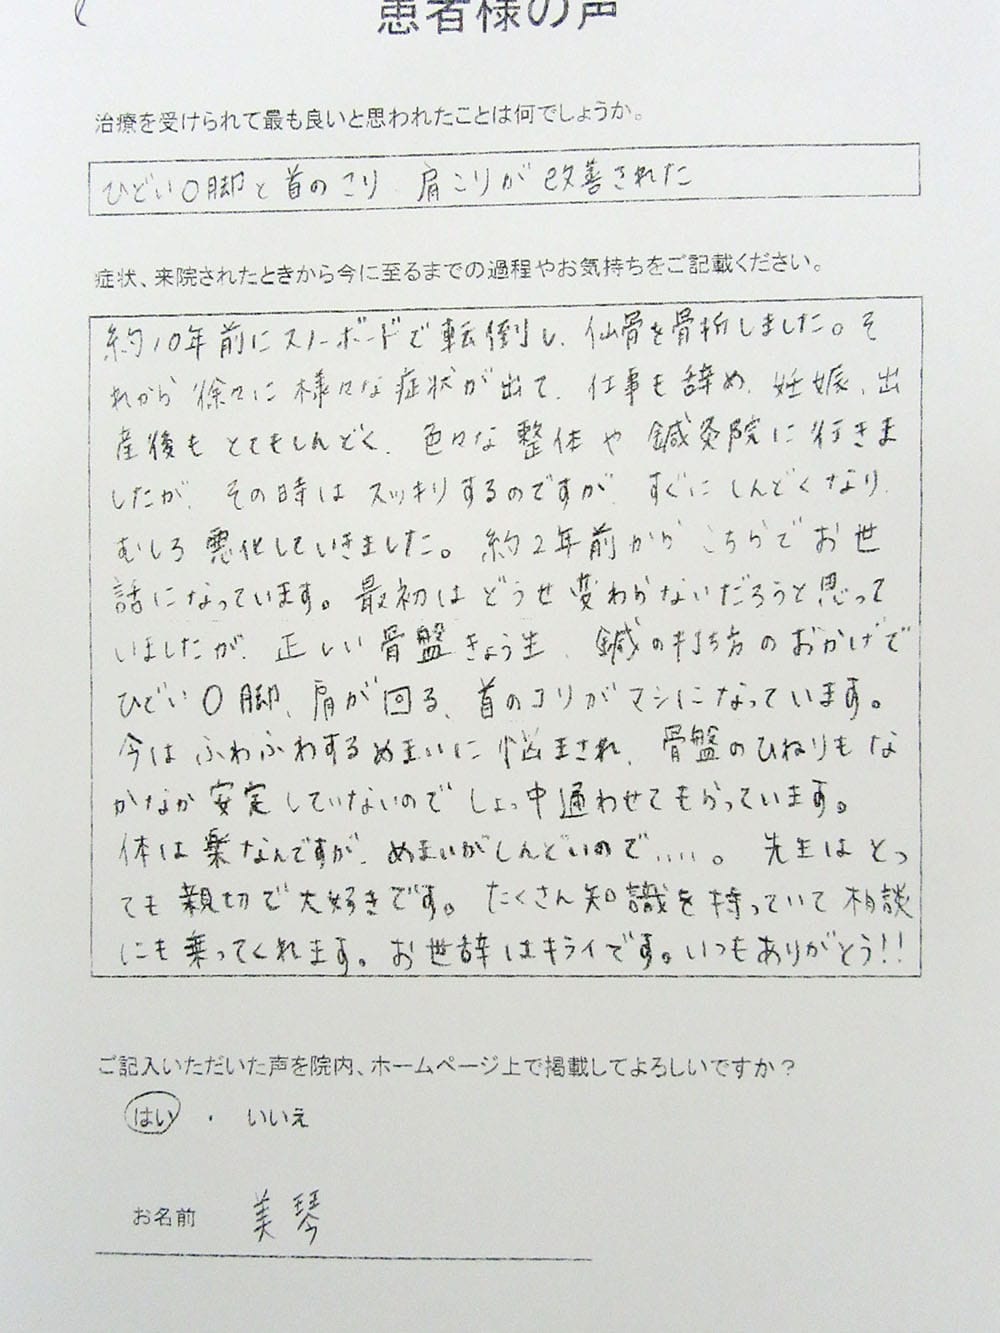 患者様の声
治療を受けられて最も良いと思われたことは何でしょうか。
ひどいO脚と首のこり、肩こりが改善された
症状、来院されたときから今に至るまでの過程やお気持ちをご記載ください。
約10年前にスノーボードで転倒し、仙骨を骨折しました。そ
れから徐々に様々な症状が出て、仕事も辞め、妊娠、出
産後もとてもしんどく、色々な整体や鍼灸院に行きま
したが、その時はスッキリするのですが、すぐにしんどくなり、
むしろ悪化していきました。約2年前からこちらでお世
話になっています。最初はどうせ変わらないだろうと思って
いましたが、正しい骨盤きょう生、鍼の打ち方のおかげで
ひどいO脚、肩が回る、首のコリがマシになっています。
今はふわふわするめまいに悩まされ、骨盤のひねりもな
かなか安定していないのでしょっ中通わせてもらっています。
体は楽なんですが、めまいがしんどいので....。先生はとっ
ても親切で大好きです。たくさん知識を持っていて相談
にも乗ってくれます。お世辞はキライです。いつもありがとう!!
ご記入いただいた声を院内、ホームページ上で掲載してよろしいですか?
はい ・ いいえ
お名前 美琴